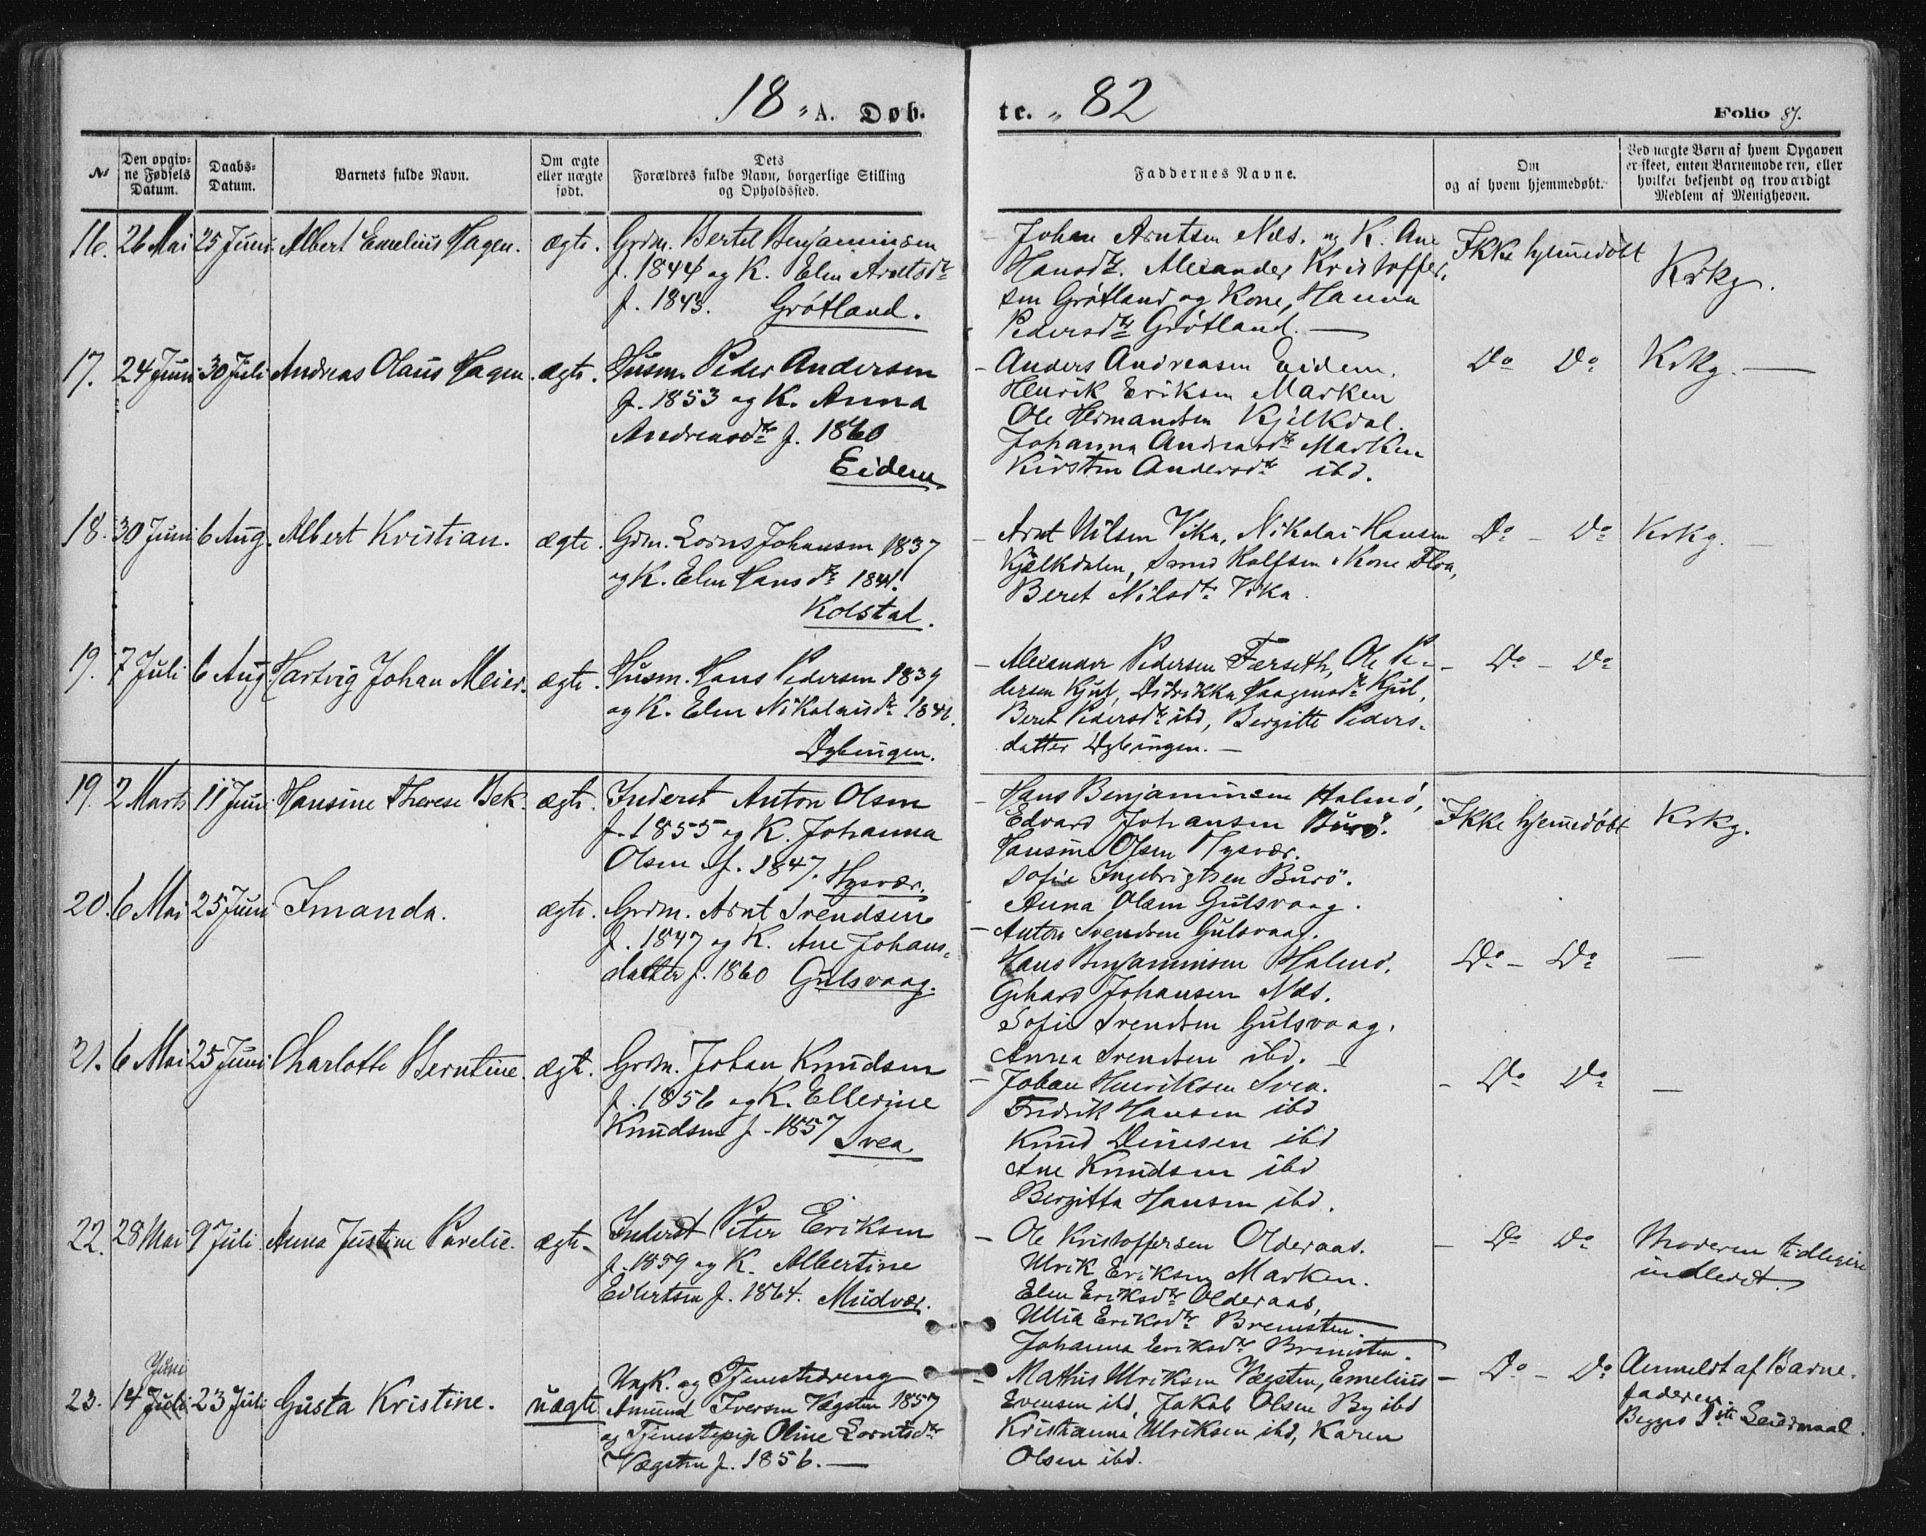 18 „ A. Døb. te. „ 82
Folio 87.
No
Den opgiv-
ne Fødsels
Datum.
Daabs-
Datum.
Barnets fulde Navn.
Om ægte
eller uægte
født.
Dets
Forældres fulde Navn, borgerlige Stilling
og Opholdssted.
Faddernes Navne.
Om
og af hvem hjemmedøbt.
Ved uægte Børn af hvem Opgaven
er skeet, enten Barnemoderen, eller
hvilket bekjendt og troværdigt
Medlem af Menigheden.
16. 26 Mai 25 Juni Albert Emelius Hagen. ægte.
Grdm. Bertel Benjaminsen
f. 1844 og K. Elen Arntsdtr
f. 1843. Grøtland.
Johan Arntsen Næs. og K. Ane
Hansdtr. Alexander Kristoffer-
sen Grøtland og Kone, Hanna
Pedersdtr Grøtland. —
Ikke hjemmedøbt
Krkg.
17. 24 Juni 30 Juli Andreas Olaus Hagen. ægte.
Husm. Peder Andersen
f. 1853 og K. Anna
Andreasdtr f. 1860
Eidem
Anders Andreasen Eidem.
Henrik Eriksen Marken
Ole Hermandsen Kjelkdal.
Johanna Andreasdtr Marken
Kirsten Andersdtr ibd.
Do Do
Krkg. —
18. 30 Juni 6 Aug. Albert Kristian. ægte.
Grdm. Lorns Johansen 1837
og K. Elen Hansdtr 1841.
Kolstad.
Arnt Nilsen Vika, Nikolai Hansen
Kjelkdalen, Svend Rolfsen & Kone Floa,
Beret Nilsdtr Vika.
Do – Do
Krkg. —
19. 7 Juli 6 Aug. Hartvig Johan Meier. ægte.
Husm. Hans Pedersen 1839
og K. Elen Nikolaisdtr 1841.
Dybingen.
Alexander Pedersen Færseth, Ole Pe-
dersen Kjul, Didrikka Haagensdtr Kjul,
Beret Pedersdtr ibd, Bergitte Peders-
datter Dybingen. —
Do – Do
19. 2 Marts 11 Juni Hansine Therese Bek. ægte.
Inderst Anton Olsen
f. 1855 og K. Johanna
Olsen f. 1847. Hysvær.
Hans Benjaminsen Halmø,
Edvard Johansen Burø.
Hansine Olsen Hysvær.
Sofie Ingebrigtsen Burø.
Anna Olsen Gulsvaag.
Ikke hjemmedøbt
Krkg.
20. 6 Mai 25 Juni Imanda. ægte.
Grdm. Arnt Svendsen
f. 1847 og K. Ane Johans-
datter f. 1860 Gulsvaag.
Anton Svendsen Gulsvaag.
Hans Benjaminsen Halmø.
Gehard Johansen Næs.
Sofie Svendsen Gulsvaag.
Anna Svendsen ibd.
Do – Do —
21. 6 Mai 25 Juni Charlotte Berntine. ægte.
Grdm. Johan Knudsen
f. 1856 og K. Ellerine
Knudsen f. 1857 Svea.
Johan Henriksen Svea.
Fredrik Hansen ibd
Knud Dinesen ibd
Ane Knudsen ibd
Bergitta Hansen ibd.
Do Do —
22. 28 Mai 9 Juli Anna Justine Parelie. ægte.
Inderst Peter Eriksen
f. 1859 og K. Albertine
Edvertsen f. 1864. Mudvær.
Ole Kristoffersen Olderaas.
Ulrik Eriksen Marken.
Elen Eriksdtr Olderaas,
Ullia Eriksdtr Bremsten.
Johanna Eriksdtr Bremsten.
Do Do
Moderen tidligere
indledet.
23. 14 Juli Juni 23 Juli Gusta Kristine. uægte
Ungk. og Tjenestedreng
Amund Iversen Vægsten 1857
og Tjenestepige Oline Lorntsdtr
Vægsten f. 1856. —
Mathis Ulriksen Vægsten, Emelius
Evensen ibd, Jakob Olsen By ibd
Kristianna Ulriksen ibd, Karen
Olsen ibd.
Do – Do
Anmeldt af Barne-
faderen
Begges 1ste Leiermaal.